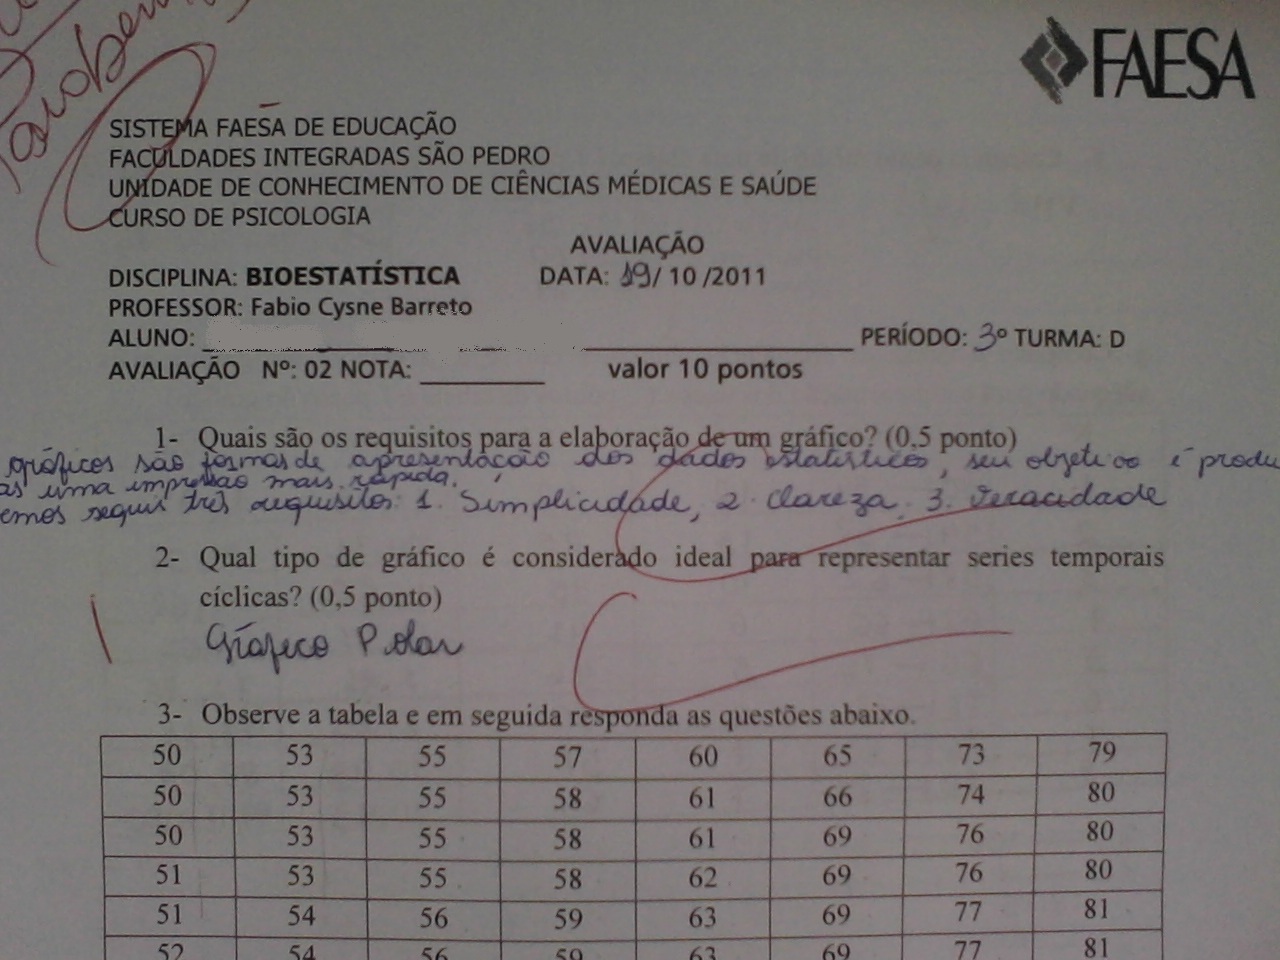 Parabéns
FAESA
SISTEMA FAESA DE EDUCAÇÃO
FACULDADES INTEGRADAS SÃO PEDRO
UNIDADE DE CONHECIMENTO DE CIÊNCIAS MÉDICAS E SAÚDE
CURSO DE PSICOLOGIA
AVALIAÇÃO
DISCIPLINA: BIOESTATÍSTICA DATA: 19/ 10 /2011
PROFESSOR: Fabio Cysne Barreto
ALUNO: PERÍODO: 3º TURMA: D
AVALIAÇÃO Nº: 02 NOTA: valor 10 pontos
1- Quais são os requisitos para a elaboração de um gráfico? (0,5 ponto)
gráficos são formas de apresentação dos dados estatísticos, seu objetivo é produ
uma impressão mais rápida.
emos seguir três requisitos: 1. Simplicidade, 2. Clareza, 3. Veracidade
2- Qual tipo de gráfico é considerado ideal para representar series temporais
cíclicas? (0,5 ponto)
Gráfico Polar
3- Observe a tabela e em seguida responda as questões abaixo.
50 53 55 57 60 65 73 79
50 53 55 58 61 66 74 80
50 53 55 58 61 69 76 80
51 53 55 58 62 69 76 80
51 54 56 59 63 69 77 81
52 54 56 59 63 69 77 81